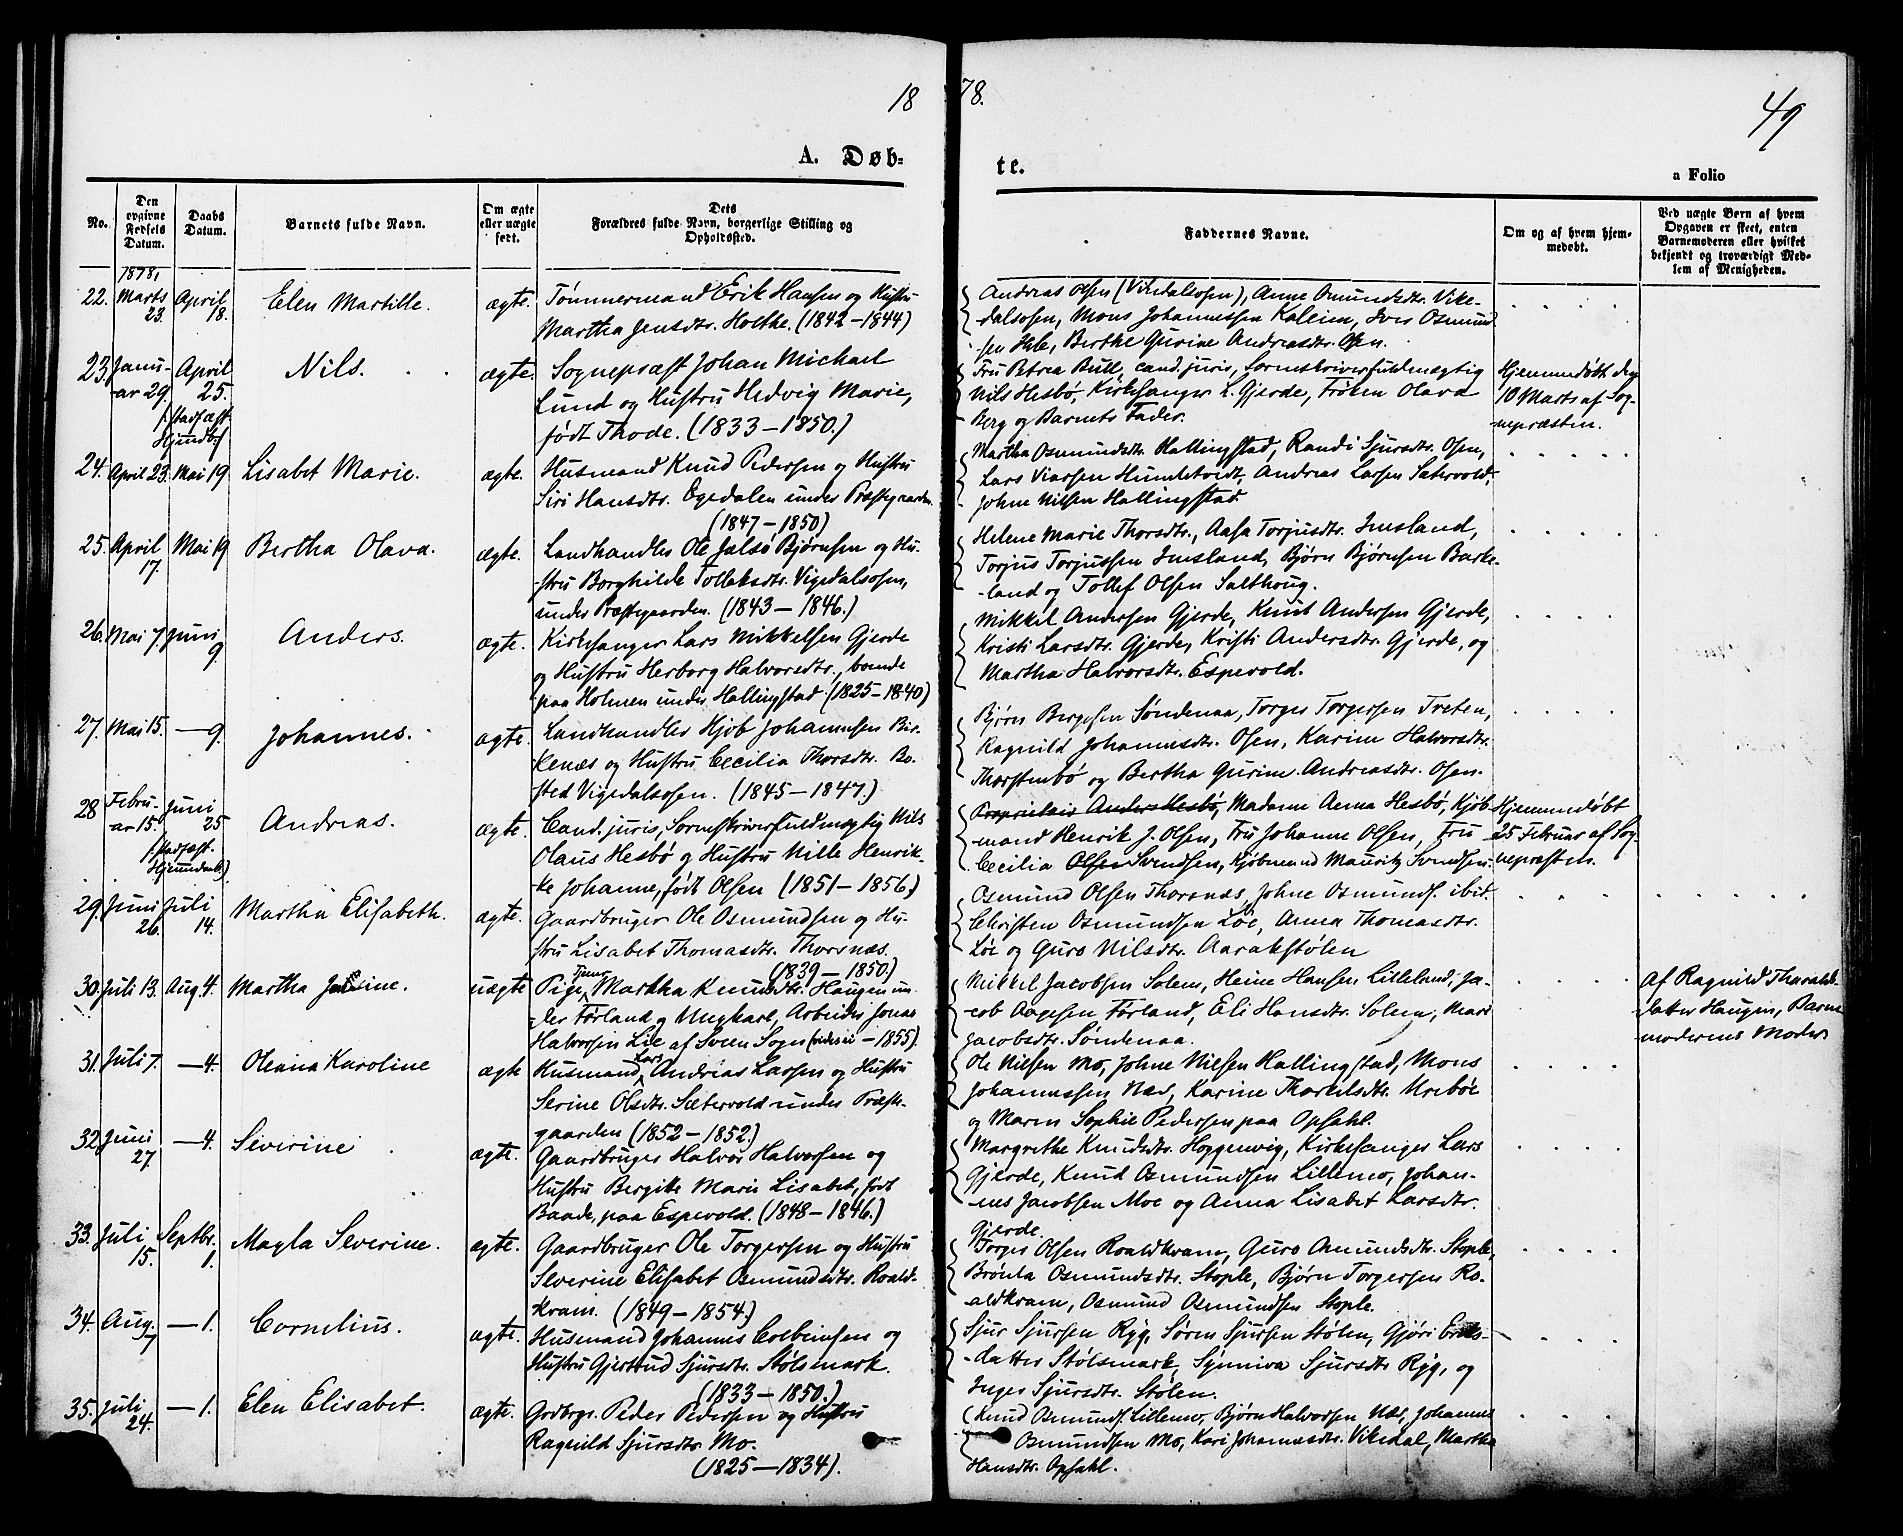 1878.
49
A. Døbte.
a Folio
No.
Den opgivne Fødsels Datum.
Daabs Datum.
Barnets fulde Navn.
Om ægte eller uægte født.
Dets Forældres fulde Navn, borgerlige Stilling og Opholdssted.
Faddernes Navne.
Om og af hvem hjemmedøbt.
Ved uægte Børn af hvem Opgaven er skeet, enten Barnemoderen eller hvilket bekjendt og troværdigt Medlem af Menigheden.
1878,
22. Marts 23. April 18. Elen Martille. ægte. Tømmermand Erik Hansen og Hustru
Martha Jensdtr. Holthe. (1842–1844)
Andreas Olsen (Vikedalsosen), Anne Omundsdtr. Vike-
dalsosen, Mons Johannessen Kaleim, Iver Osmund
sen , Berthe Gurine Andreasdtr. Osen.
23. Janu-
ar 29. April 25. (stadfæst. Hjmdb.) Nils. ægte. Sognepræst Johan Michael
Lund og Hustru Hedvig Marie,
født Thode. (1833–1850.)
Fru Petrea Bull, cand. juris, Sorenskriverfuldmægtig
Nils Hesbø, Kirkesanger L. Gjerde, Frøken Olava
Berg og Barnets Fader.
Hjemmedøbt den
10 Marts af Sog-
nepræsten.
24. April 23. Mai 19. Lisabet Marie. ægte. Husmand Knud Pedersen og Hustru
Siri Hansdtr. Egedalen under Præstegaarden.
(1847–1850)
Martha Osmundsdtr. Hallingstad, Randi Sjursdtr. Osen,
Lars Larsen Hundetvedt, Andreas Larsen Sætervold,
Johne Nilsen Hallingstad.
25. April 17. Mai 19 Bertha Olava. ægte. Landhandler Ole Jalsø Bjørnsen og Hu-
stru Borghilde Tolleksdtr. Vigedalsosen,
under Præstegaarden. (1843–1846.)
Helene Marie Thorsdtr., Aasa Torjusdtr. Imsland,
Torjus Torjussen Imsland, Bjørn Bjørnsen Barke-
land og Tollef Olsen Salthoug.
26. Mai 7 Juni 9. Anders. ægte. Kirkesanger Lars Mikkelsen Gjerde
og Hustru Herborg Halvorsdtr., boende
paa Holmen under Hallingstad (1825–1840)
Mikkel Andersen Gjerde, Knut Andersen Gjerde,
Kristi Larsdtr. Gjerde, Kristi Andersdtr. Gjerde, og
Martha Halvorsdtr. Espevold.
27. Mai 15. — 9. Johannes. ægte. Landhandler Hjøb Johannesen Bir-
kenæs og Hustru Cecilia Thorsdtr. Bo-
sted Vigedalsosen. (1845–1847.)
Bjørn Bergesen Søndenaa, Torger Torgersen Treten,
Ragnild Johannesdtr. Osen, Karine Halvorsdtr.
Thorstenbø og Bertha Gurine Andreasdtr. Osen.
28 Febru-
ar 15. Juni 25 (stadfæst. Hjemmedøb.) Andreas. ægte. Cand. juris, Sorenskriverfuldmægtig Nils
Olaus Hesbø og Hustru Nille Henrik-
ke Johanne, født Olsen (1851–1856.)
Proprietair Anders Hesbø, Madame Anna Hesbø, Kjøb-
mand Henrik J. Olsen, Fru Johanne Olsen, Fru
Cecilia Olsen Svendsen, Kjøbmand Mauritz Svendsen.
Hjemmedøbt
25 Februar af Sog-
nepræsten.
29. Juni 26. Juli 14. Martha Elisabeth. ægte. Gaardbruger Ole Osmundsen og Hu-
stru Lisabet Thomasdtr. Thorsnæs.
(1839–1850.)
Osmund Olsen Thorsnæs, Johne Osmunds. ibid.
Christen Osmundsen Løe, Anna Thomasdtr.
Løe og Guro Nilsdtr. Aarakstølen
30. Juli 13. Aug. 4. Martha Josine. uægte Tjene
Pige, Martha Knudsdtr. Haugen un-
der Førland og Ungkarl, Arbeider Jonas
Halvorsen Lie af Sveen Sogn ( – 1855).
Mikkel Jacobsen Solem, Heine Hansen Lilleland, Ja-
cob Aagesen Førland, Eli Hansdtr. Solem, Mari
Jacobsdtr. Søndenaa.
Af Ragnild Tharalds-
datter Haugen, Barne-
moderens Moder
31. Juli 7. — 4. Oleana Karoline ægte Husmand, Lars Andreas Larsen og Hustru
Serine Olsdtr. Sætervold under Præste-
gaarden (1852–1852.)
Ole Nilsen Mo, Johne Nilsen Hallingstad, Mons
Johannessen Næs, Karine Thorkilsdtr. Urebøe
og Maren Sophie Pedersen paa Opsahl.
32. Juni 27. — 4. Severine ægte. Gaardbruger Halvor Halvorsen og
Hustru Bergitte Marie Lisabet, født
Baade, paa Espevold. (1848–1846.)
Margrethe Knudsdtr. Hoggenvig, Kirkesanger Lars
Gjerde, Knud Osmundsen Lillemo, Johan-
nes Jacobsen Moe og Anna Lisabet Larsdtr.
Gjerde.
33. Juli 15. Septbr. 1. Magla Severine. ægte. Gaardbruger Ole Torgersen og Hustru
Severine Elisabet Osmundsdtr. Roald-
kvam. (1849–1854.)
Torger Olsen Roaldkvam, Guro Osmundsdtr. Stople,
Brønla Osmundsdtr. Stople, Bjørn Torgersen Ro-
aldkvam, Osmund Osmundsen Stople.
34. Aug. 7 — 1. Cornelius. ægte. Husmand Johannes Colbeinsen og
Hustru Gjertrud Sjursdtr. Stølsmark.
(1833–1850.)
Sjur Sjursen Ryg, Søren Sjursen Stølen, Gjøri Eriks-
datter Stølsmark, Synnva Sjursdtr Ryg, og
Inger Sjursdtr. Stølen.
35. Juli 24. — 1. Elen Elisabet. ægte. Grdbrgr. Peder Pedersen og Hustru
Ragnild Sjursdtr. Mo.
(1825–1834).
Knud Osmunds. Lillemo, Bjørn Halvorsen Næs, Johannes
Osmundsen Mo, Kari Johannesdtr. Vikedal, Martha
Hansdtr. Opsahl.